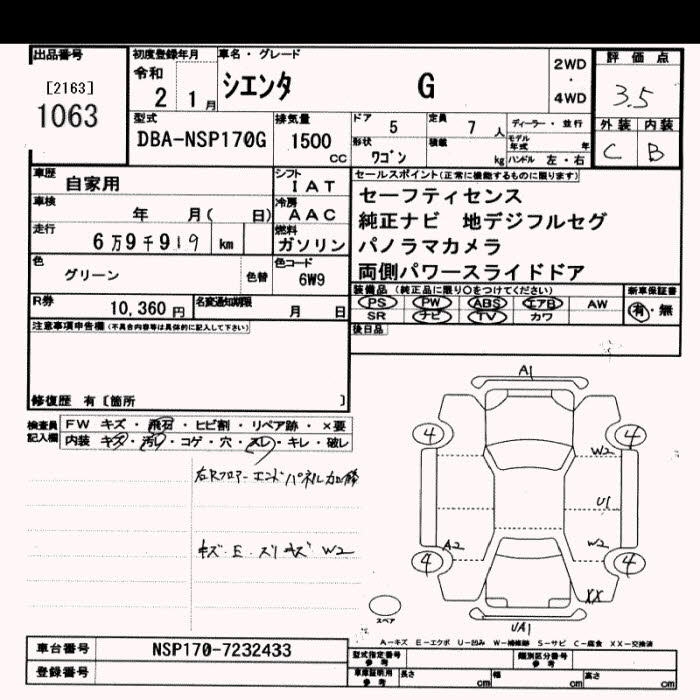 出品番号
[2163]
1063
初度登録年月
令和
2 1月
車名・グレード
シエンタ G
2WD
・
4WD
評価点
3.5
外装 内装
C B
型式
DBA-NSP170G
排気量
1500
cc
ドア 5
定員 7人
形状 ワゴン
積載 kg
ディーラー・並行
モデル年式 年
ハンドル 左・右
車歴 自家用
シフト IAT
車検 年 月( 日)
冷房 AAC
走行 6万9千919km
燃料 ガソリン
色 グリーン
色替
色コード 6W9
R券 10,360円
名変通知期限 月 日
セールスポイント(正常に機能するものに限ります)
セーフティセンス
純正ナビ 地デジフルセグ
パノラマカメラ
両側パワースライドドア
装備品(純正品に限り○をつけてください)
PS PW ABS エアB AW
SR ナビ TV カワ
新車保証書
有・無
後日品
注意事項申告欄(不具合内容等は具体的に記入して下さい)
修復歴 有[箇所 ]
検査員記入欄
FW キズ・飛石・ヒビ割・リペア跡・×要
内装 キズ・汚れ・コゲ・穴・スレ・キレ・破レ
右Rフロアーエンドパネル加修
キズ・E・スリキズ W2
A1
4
4
W2
U1
A2
W2
4
4
XX
UA1
スペア
A-キズ E-エクボ U-凹み W-補修跡 S-サビ C-腐食 XX-交換済
車台番号 NSP170-7232433
登録番号
型式指定番号
参考
類別区分番号
参考
車庫証明用
参考
長さ cm
幅 cm
高さ cm